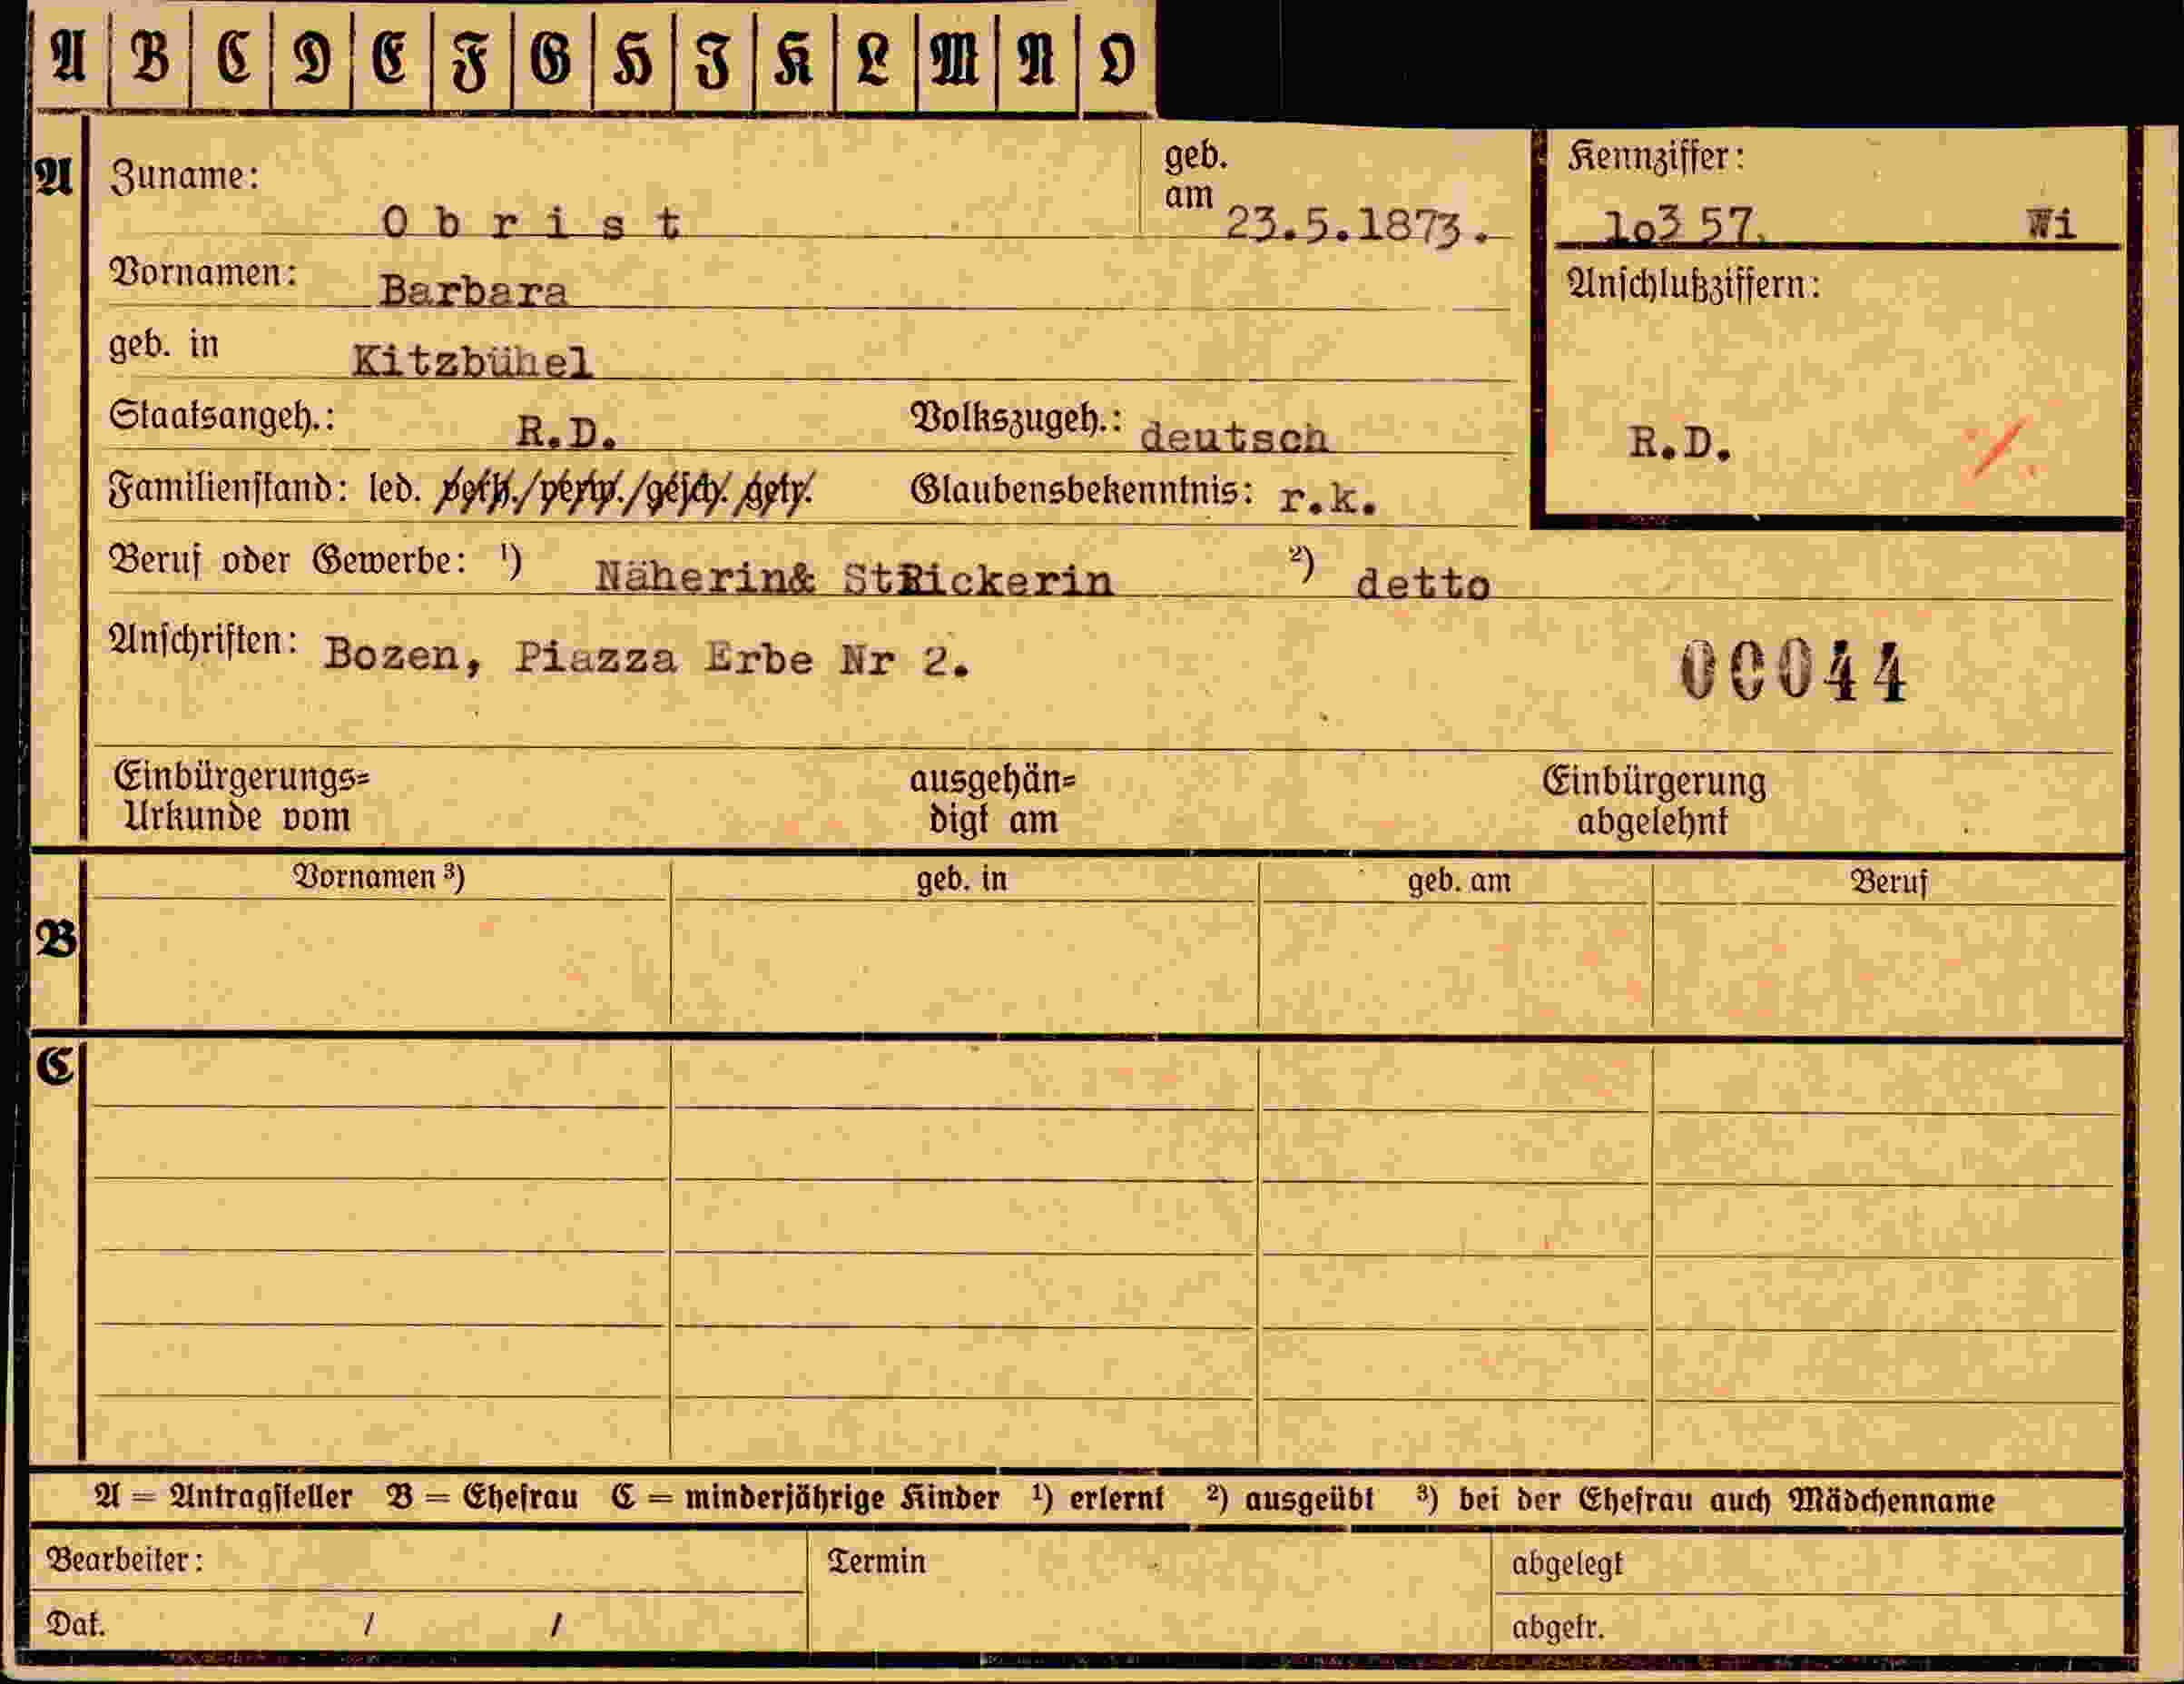 A B C D E F G H I K L M N O
A Zuname: Obrist geb. am 23.5.1873. Kennziffer: 1o3 57. Wi
Vornamen: Barbara Anschlußziffern:
geb. in Kitzbühel
Staatsangeh.: R.D. Volkszugeh.: deutsch R.D. /.
Familienstand: led. verh./verw./gesch. getr. Glaubensbekenntnis: r.k.
Beruf oder Gewerbe: ¹) Näherin& StRickerin ²) detto
Anschriften: Bozen, Piazza Erbe Nr 2. 00044
Einbürgerungs= ausgehän= Einbürgerung
Urkunde vom digt am abgelehnt
Vornamen ³) geb. in geb. am Beruf
B
C
A = Antragsteller B = Ehefrau C = minderjährige Kinder ¹) erlernt ²) ausgeübt ³) bei der Ehefrau auch Mädchenname
Bearbeiter: Termin abgelegt
Dat. / / abgefr.